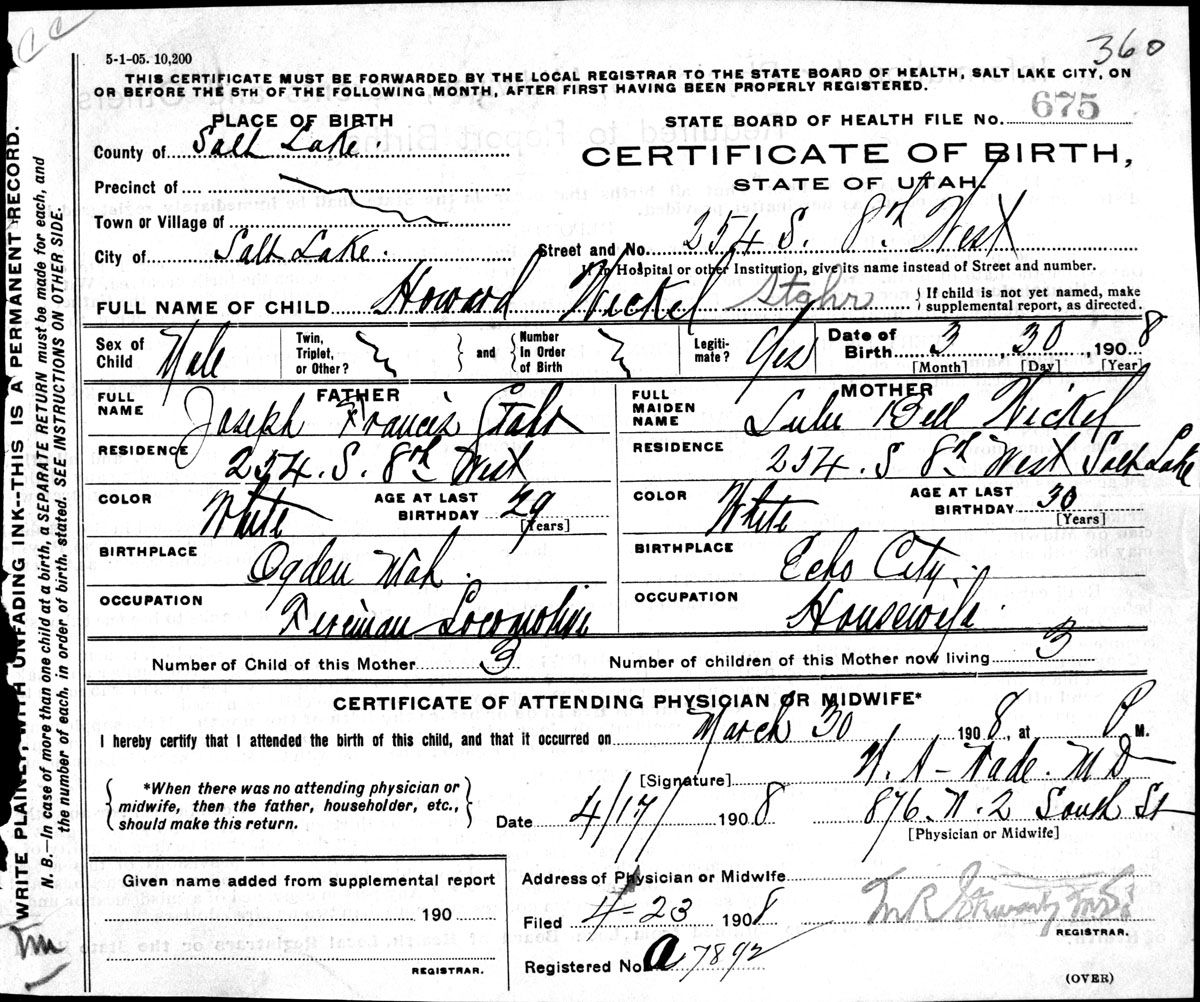 360
5-1-05. 10,200
THIS CERTIFICATE MUST BE FORWARDED BY THE LOCAL REGISTRAR TO THE STATE BOARD OF HEALTH, SALT LAKE CITY, ON
OR BEFORE THE 5TH OF THE FOLLOWING MONTH, AFTER FIRST HAVING BEEN PROPERLY REGISTERED.
PLACE OF BIRTH
STATE BOARD OF HEALTH FILE NO. 675
County of Salt Lake.
CERTIFICATE OF BIRTH,
STATE OF UTAH.
Precinct of
Town or Village of
City of Salt Lake. Street and No. 254 S. 8th West
If in Hospital or other Institution, give its name instead of Street and number.
FULL NAME OF CHILD Howard Nickel Stahr { If child is not yet named, make supplemental report, as directed.
Sex of Child Male Twin, Triplet, or Other? } and { Number In Order of Birth Legitimate? Yes Date of Birth 3, 30, 1908
[Month] [Day] [Year]
FATHER MOTHER
FULL NAME Joseph Francis Stahr FULL MAIDEN NAME Lulu Bell Nickel
RESIDENCE 254. S. 8th West RESIDENCE 254. S 8th West Salt Lake
COLOR White AGE AT LAST BIRTHDAY 29 [Years] COLOR White AGE AT LAST BIRTHDAY 30 [Years]
BIRTHPLACE Ogden Utah. BIRTHPLACE Echo City.
OCCUPATION Fireman Locomotive OCCUPATION Housewife.
Number of Child of this Mother 3 Number of children of this Mother now living 3
CERTIFICATE OF ATTENDING PHYSICIAN OR MIDWIFE*
I hereby certify that I attended the birth of this child, and that it occurred on March 30 1908, at P M.
{ *When there was no attending physician or midwife, then the father, householder, etc., should make this return. }
[Signature] W. A. Wade. M D
Date 4/17/ 1908 876. W. 2 South St
[Physician or Midwife]
Given name added from supplemental report
190
REGISTRAR.
Address of Physician or Midwife
Filed 4-23 1908
REGISTRAR.
Registered No. a 7892
(OVER)
WRITE PLAINLY, WITH UNFADING INK--THIS IS A PERMANENT RECORD.
N. B.—In case of more than one child at a birth, a SEPARATE RETURN must be made for each, and
the number of each, in order of birth, stated. SEE INSTRUCTIONS ON OTHER SIDE.